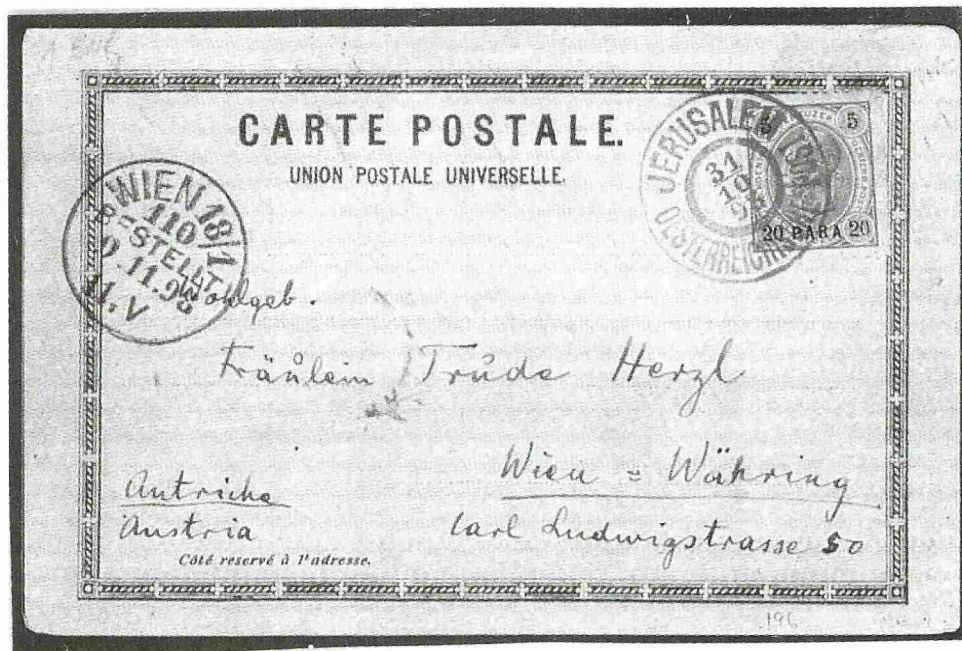 CARTE POSTALE.
UNION POSTALE UNIVERSELLE.
JERUSALEM
31
10
98
OESTERREICHISCHE
5
20 PARA 20
WIEN 18/1
110
BESTELLT
9.11.98
11.V
Wohlgeb
Fräulein Trude Herzl
Wien = Währing
Autriche
Austria
Carl Ludwigstrasse 50
Côté reservé à l'adresse.
196